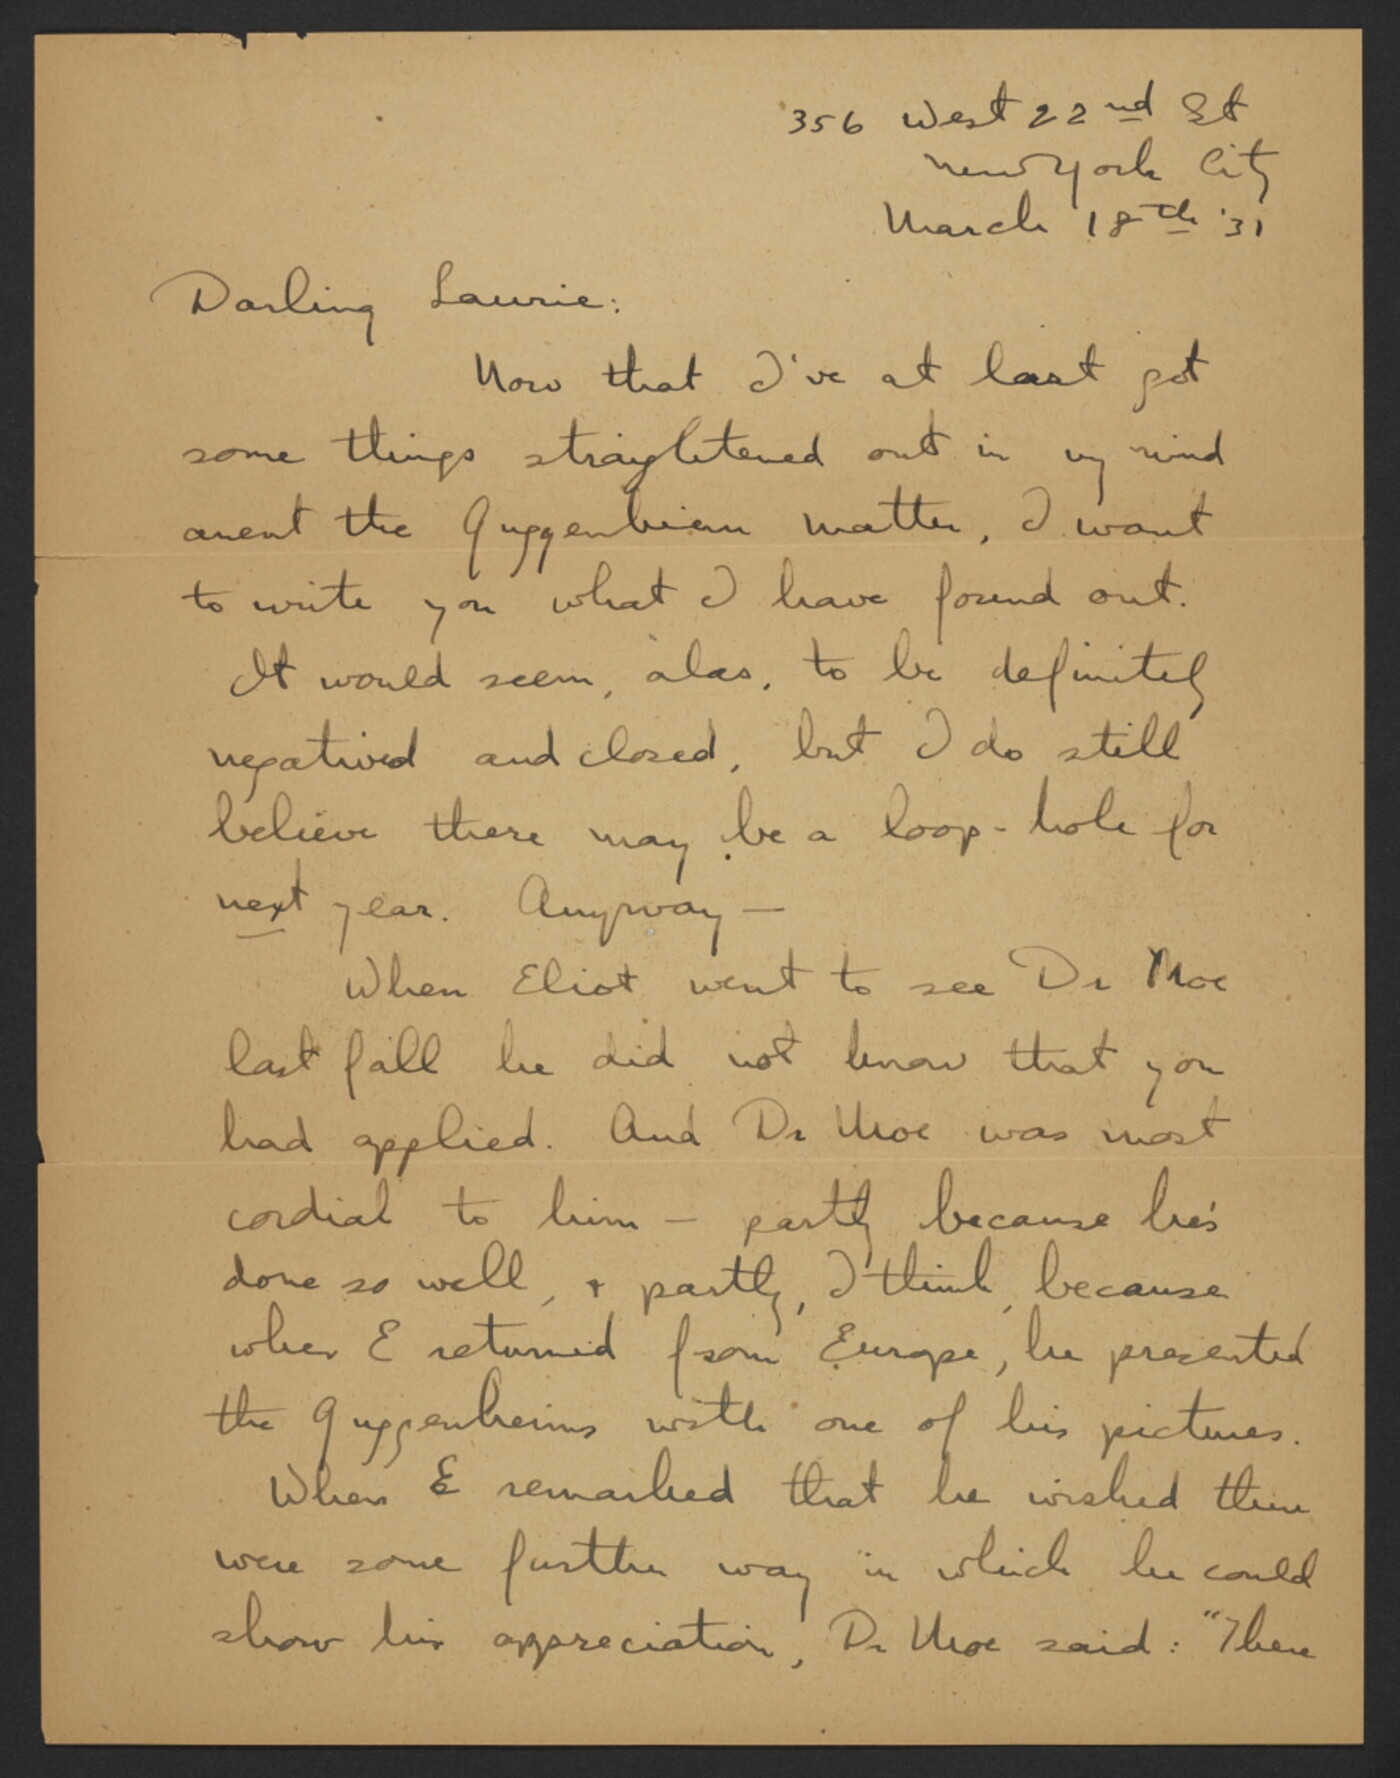 356 West 22nd St
New York City
March 18th '31
Darling Laurie:
Now that I've at last got
some things straightened out in my mind
anent the Guggenheim matter, I want
to write you what I have found out.
It would seem, alas, to be definitely
negatived and closed, but I do still
believe there may be a loop-hole for
next year. Anyway —
When Eliot went to see Dr Moe
last fall he did not know that you
had applied. And Dr Moe was most
cordial to him — partly because he's
done so well, & partly, I think, because
when E returned from Europe, he presented
the Guggenheims with one of his pictures.
When E remarked that he wished there
were some further way in which he could
show his appreciation, Dr Moe said: "There